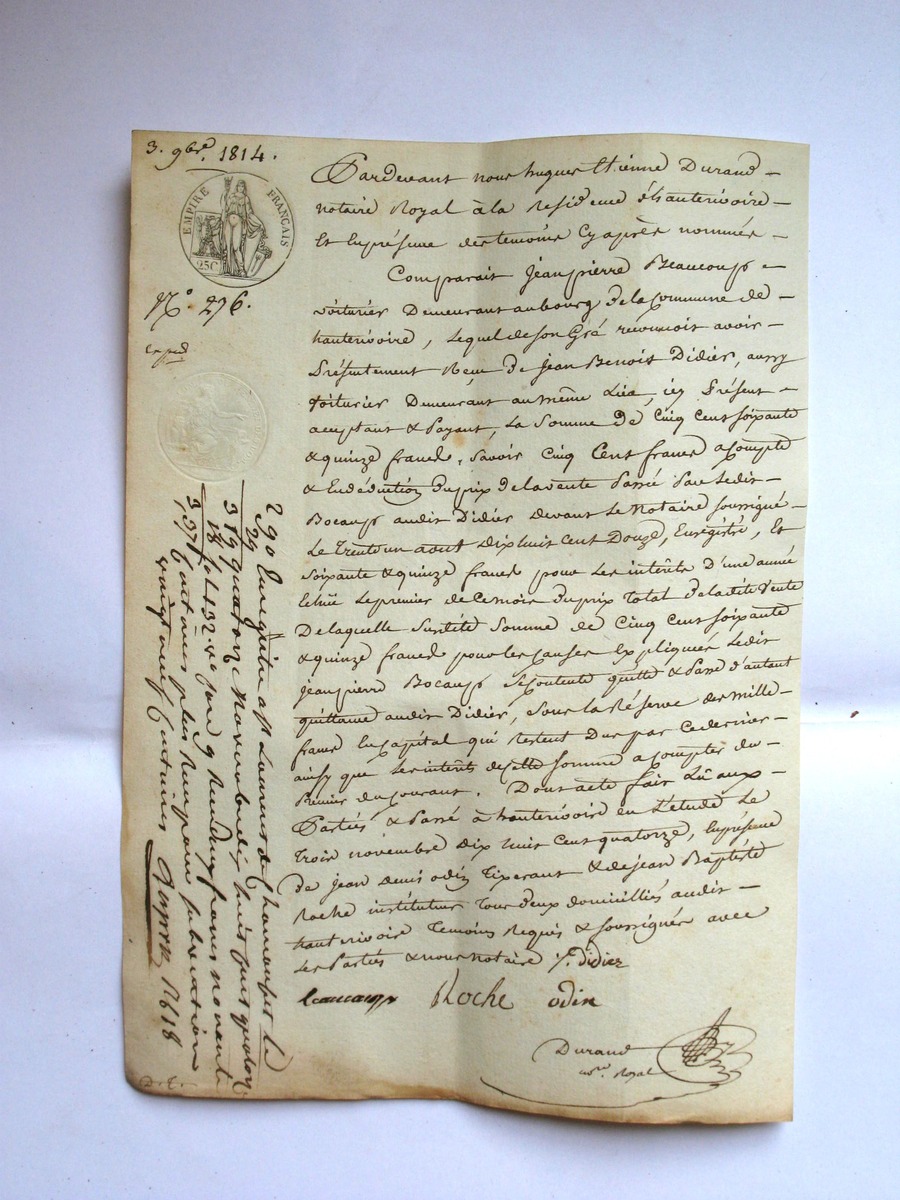 3. 9bre. 1814.
EMPIRE FRANÇAIS
25C
N° 296.
exped
Pardevant nous hugues Etienne Durand
notaire Royal à la Residence d'hauterivoire
Et Enpresence des temoins Cy après nommés
Comparait Jeanpierre Beaucoup
voiturier Demeurant aubourg de la Commune de
hauterivoire, lequel de son Gré reconnoit avoir
Présentement Reçu de Jean Benoit Didier, aussy
voiturier Demeurant au même Lieu, icy Présent
acceptant & Payant, La Somme de Cinq Cent soixante
& quinze francs, savoir Cinq Cent francs acompte
& En déduction Du prix de la vente Passée Par Ledit
Bocaup audit Didier Devant Le Notaire soussigné
Le Trente un aout Dix huit Cent Douze, Enregistré, Et
soixante & quinze francs pour les intérêts D'une année
Echüe Le premier de Ce mois Du prix Total De la dite Vente
De laquelle Susdite Somme de Cinq Cent soixante
& quinze francs pour les Causes Expliquées Ledit
jeanpierre Bocaup Se Contente quitte & Passe d'autant
quittance audit Didier, sous la Réserve des mille
francs En Capital qui restent Dus par Ce dernier
ainsy que Les intérêts de Cette Somme a Compter du
Premier du Courant. Dont acte fait Lû aux
Parties & Passé à hauterivoire En L'étude Le
Trois novembre Dix huit Cent quatorze, En présence
de Jean Denis odin Tixerant & de jean Baptiste
Roche instituteur Tous Deux domiciliés audit
hauterivoire Temoins Requis & soussignés avec
Les Parties & nous notaire j. didier
Roche odin
Durand
nore. Royal
290 Enregistré a St Laurent de Chamousset le
29 quatorze Novembre dix huit cent quatorze
319 fol 132
18
337
vingt neuf Centimes
D. C.